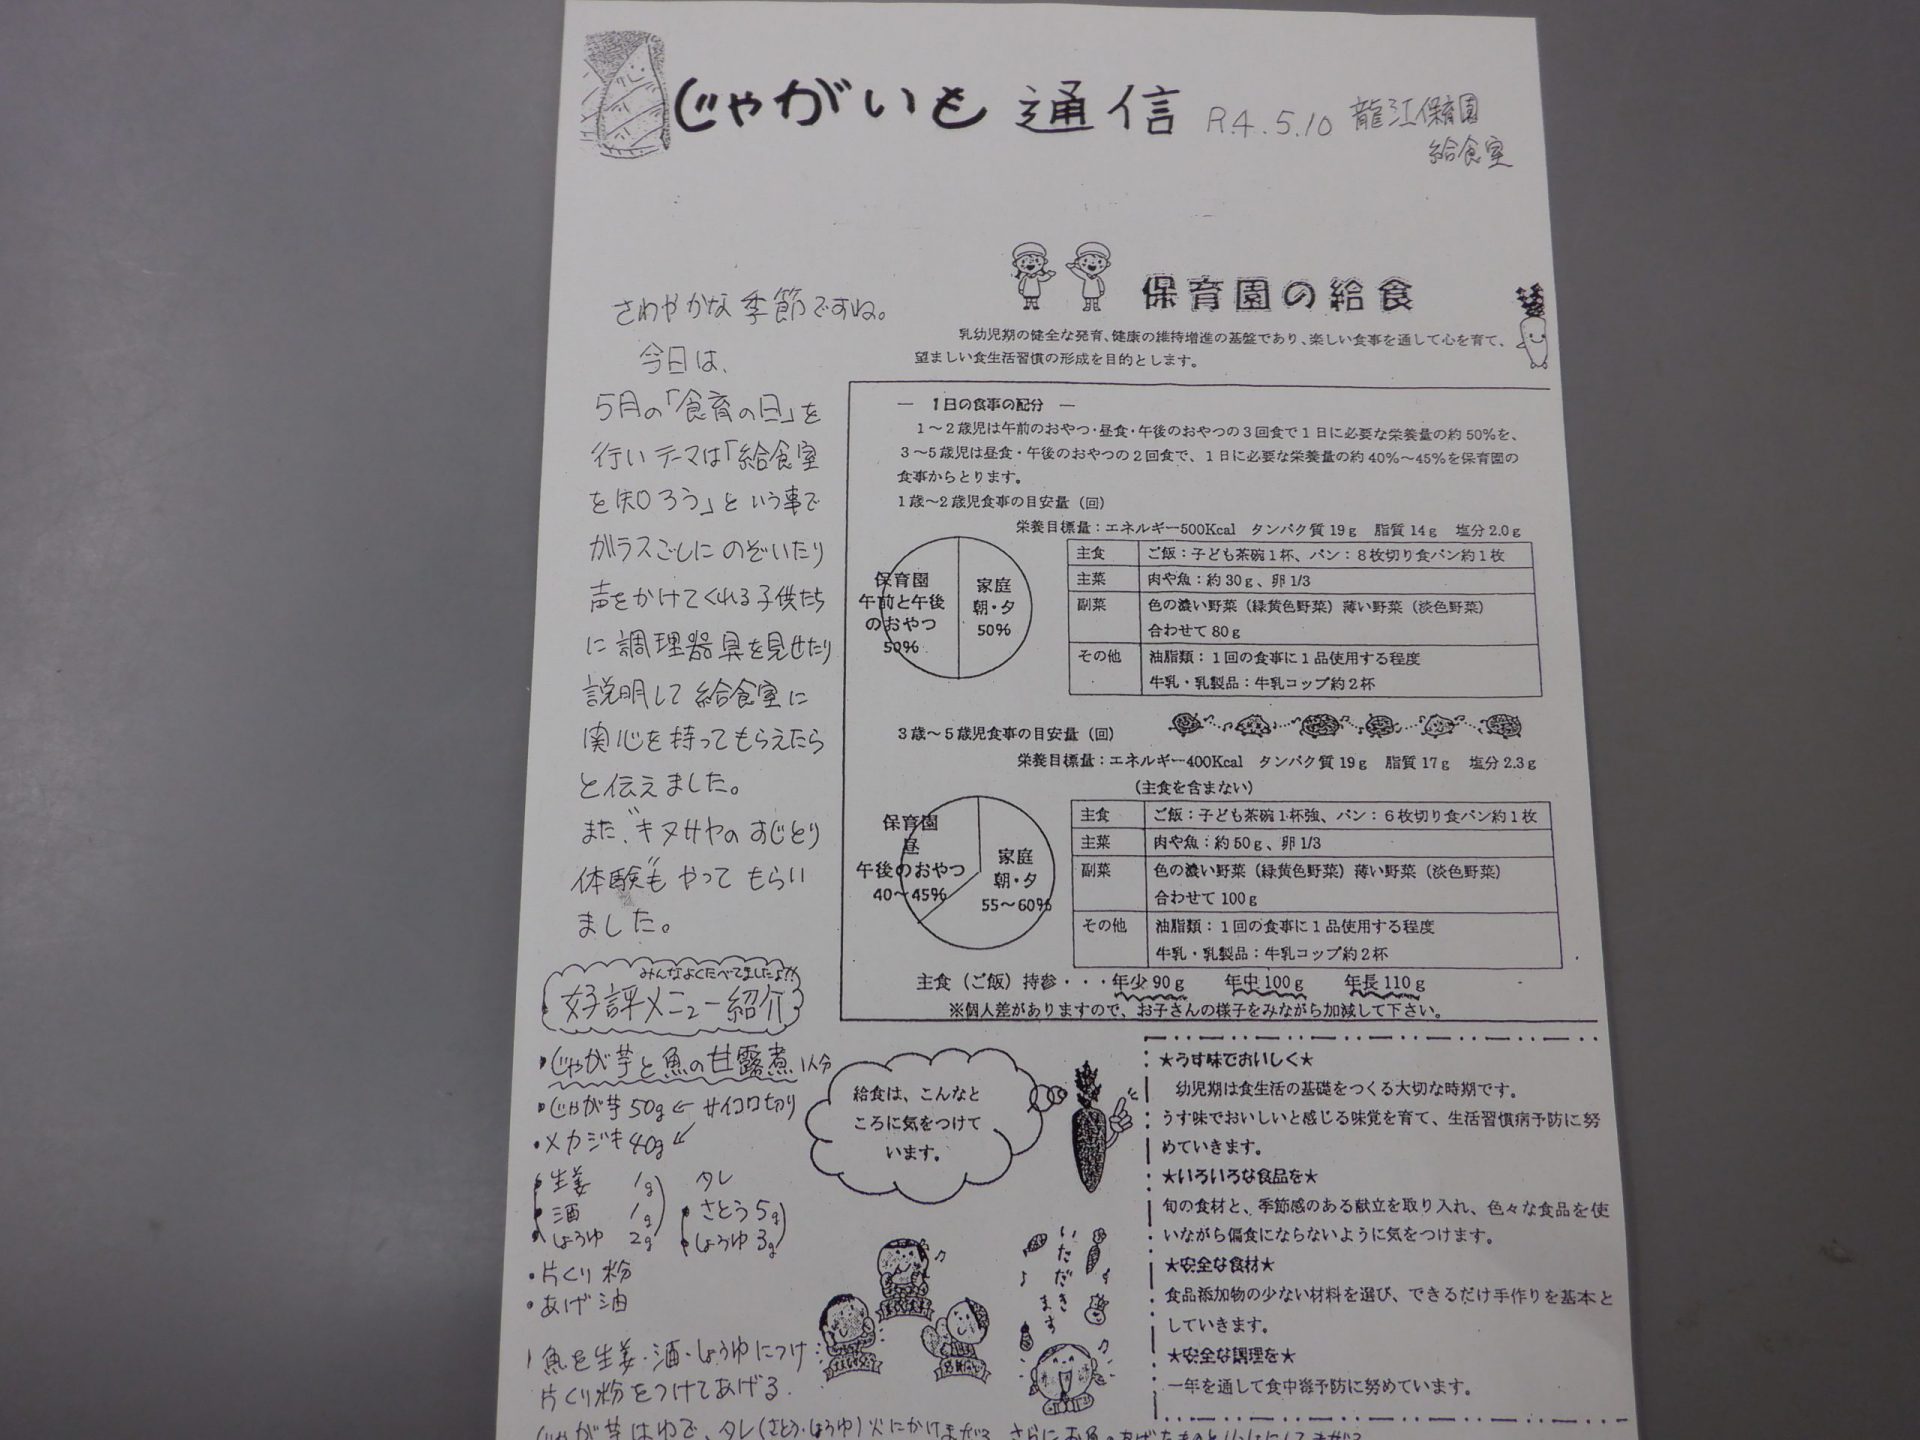 じゃがいも通信 R.4.5.10 龍江保育園
給食室
さわやかな季節ですね。
今日は、
5月の「食育の日」を
行いテーマは「給食室
を知ろう」という事で
ガラスごしにのぞいたり
声をかけてくれる子供たち
に調理器具を見せたり
説明して給食室に
関心を持ってもらえたら
と伝えました。
また、"キヌサヤのすじとり
体験"もやってもらい
ました。
みんなよくたべてました♪
好評メニュー紹介
・じゃが芋と魚の甘露煮 1人分
・じゃが芋50g ← サイコロ切り
・メカジキ40g
・生姜 1g
・酒 1g
・しょうゆ 2g
タレ
・さとう5g
・しょうゆ3g
・片くり粉
・あげ油
1 魚を生姜・酒・しょうゆにつけ
片くり粉をつけてあげる.
じゃが芋はゆで、タレ(さとう・しょうゆ)火にかけ
保育園の給食
乳幼児期の健全な発育、健康の維持増進の基盤であり、楽しい食事を通して心を育て、
望ましい食生活習慣の形成を目的とします。
― 1日の食事の配分 ―
1～2歳児は午前のおやつ・昼食・午後のおやつの3回食で1日に必要な栄養量の約50%を、
3～5歳児は昼食・午後のおやつの2回食で、1日に必要な栄養量の約40%～45%を保育園の
食事からとります。
1歳～2歳児食事の目安量（回）
栄養目標量：エネルギー500Kcal タンパク質19g 脂質14g 塩分2.0g
保育園
午前と午後
のおやつ
50%
家庭
朝・夕
50%
主食 ご飯：子ども茶碗1杯、パン：8枚切り食パン約1枚
主菜 肉や魚：約30g、卵1/3
副菜 色の濃い野菜（緑黄色野菜）薄い野菜（淡色野菜）
合わせて80g
その他 油脂類：1回の食事に1品使用する程度
牛乳・乳製品：牛乳コップ約2杯
3歳～5歳児食事の目安量（回）
栄養目標量：エネルギー400Kcal タンパク質19g 脂質17g 塩分2.3g
（主食を含まない）
保育園
昼
午後のおやつ
40～45%
家庭
朝・夕
55～60%
主食 ご飯：子ども茶碗1杯強、パン：6枚切り食パン約1枚
主菜 肉や魚：約50g、卵1/3
副菜 色の濃い野菜（緑黄色野菜）薄い野菜（淡色野菜）
合わせて100g
その他 油脂類：1回の食事に1品使用する程度
牛乳・乳製品：牛乳コップ約2杯
主食（ご飯）持参・・・年少90g 年中100g 年長110g
※個人差がありますので、お子さんの様子をみながら加減して下さい。
給食は、こんなと
ころに気をつけて
います。
いただきます
★うす味でおいしく★
幼児期は食生活の基礎をつくる大切な時期です。
うす味でおいしいと感じる味覚を育て、生活習慣病予防に努
めていきます。
★いろいろな食品を★
旬の食材と、季節感のある献立を取り入れ、色々な食品を使
いながら偏食にならないように気をつけます。
★安全な食材★
食品添加物の少ない材料を選び、できるだけ手作りを基本と
していきます。
★安全な調理を★
一年を通して食中毒予防に努めています。